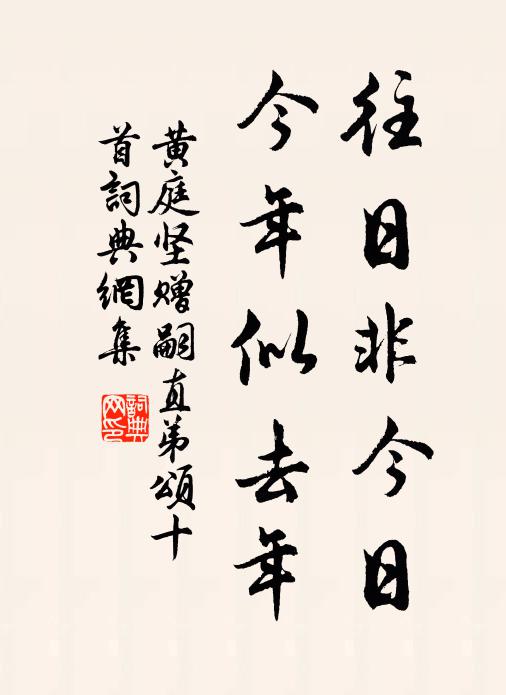 往日非今日
今年似去年
黄庭坚赠嗣直弟頌十
首詞典網集
詞典
网印